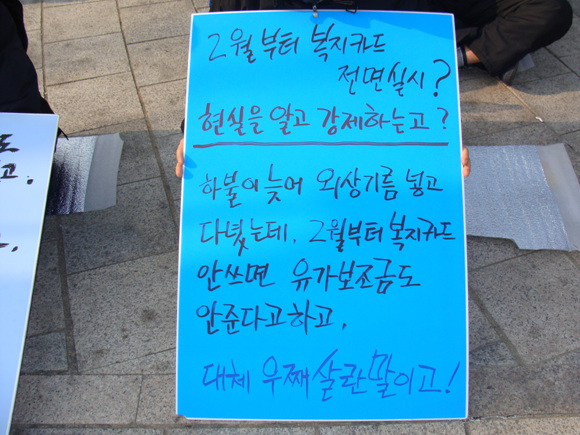 2월부터 복지카드
전면실시?
현실을 알고 강제하는고?
하불이 늦어 외상기름 넣고
다녔는데, 2월부터 복지카드
안쓰면 유가보조금도
안준다고하고,
대체 우째살란말이고!
고.